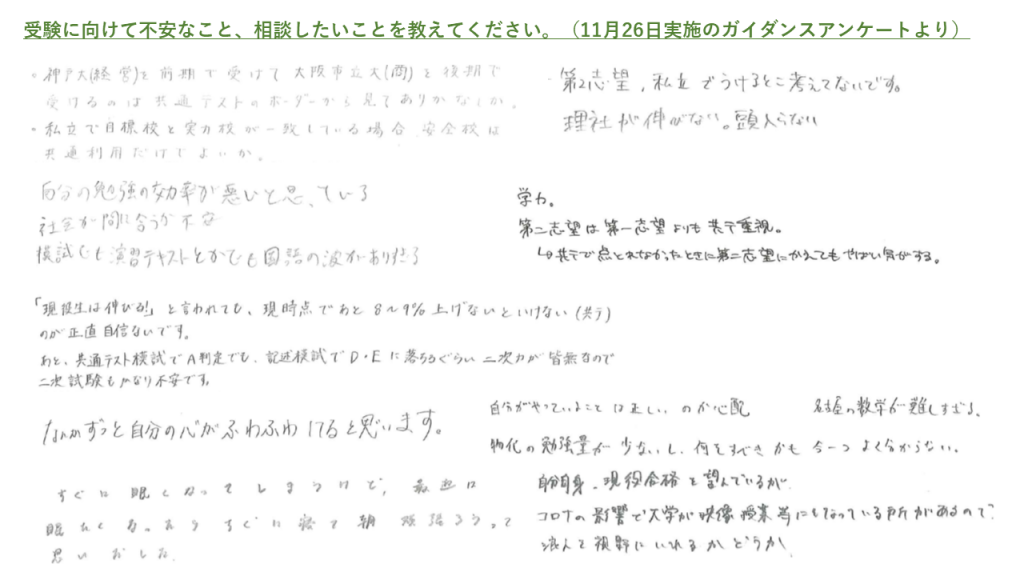 受験に向けて不安なこと、相談したいことを教えてください。（11月26日実施のガイダンスアンケートより）
・神戸大(経営)を前期で受けて大阪市立大(商)を後期で
受けるのは共通テストのボーダーから見てありかなしか。
・私立で目標校と実力校が一致している場合、安全校は
共通利用だけでよいか。
・第2志望、私立でうけるとこ考えてないです。
理社が伸びない。頭入らない
自分の勉強の効率が悪いと思っている
社会が間に合うか不安
模試でも演習テキストとかでも国語の波がありすぎる
学力。
第二志望は第一志望よりも共テ重視。
↳共テで点とれなかったときに第二志望にかえてもやばい気がする。
「現役生は伸びる!」と言われても、現時点であと8~9%上げないといけない(共テ)
のが正直自信ないです。
あと、共通テスト模試でA判定でも、記述模試でD・Eに落ちるぐらい二次力が皆無なので
二次試験もかなり不安です。
なんかずっと自分の心がふわふわしてると思います。
自分がやっていることは正しいのか心配
名古屋の数学が難しすぎる。
物化の勉強量が少ないし、何をすべきかも今一つよく分からない。
自分自身、現役合格を望んでいるが、
コロナの影響で大学が映像授業等にもなっている所があるので、
浪人も視野にいれるかどうか。
すぐに眠くなってしまうけど、最近は
眠たくなったらすぐに寝て朝頑張ろうって
思いました。